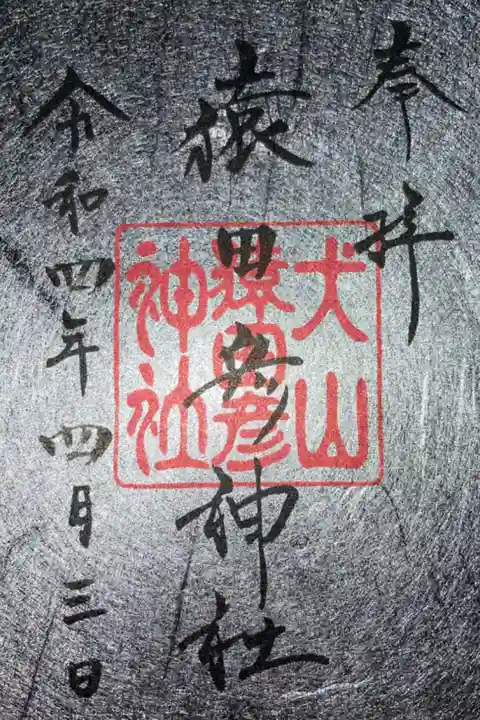 奉拝
猿田彦神社
令和四年四月三日
犬山
猿田彦
神社